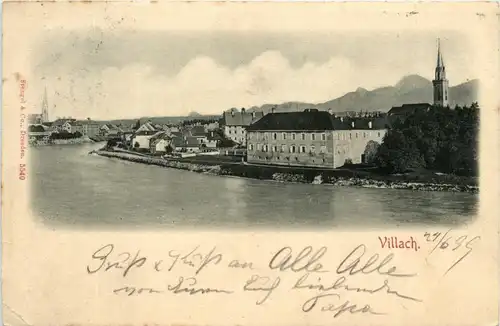 Stengel & Co., Dresden. 5540
Villach. 24/6 99
Gruß & Kuß an Alle Alle
von Euren Euch liebenden
Papa